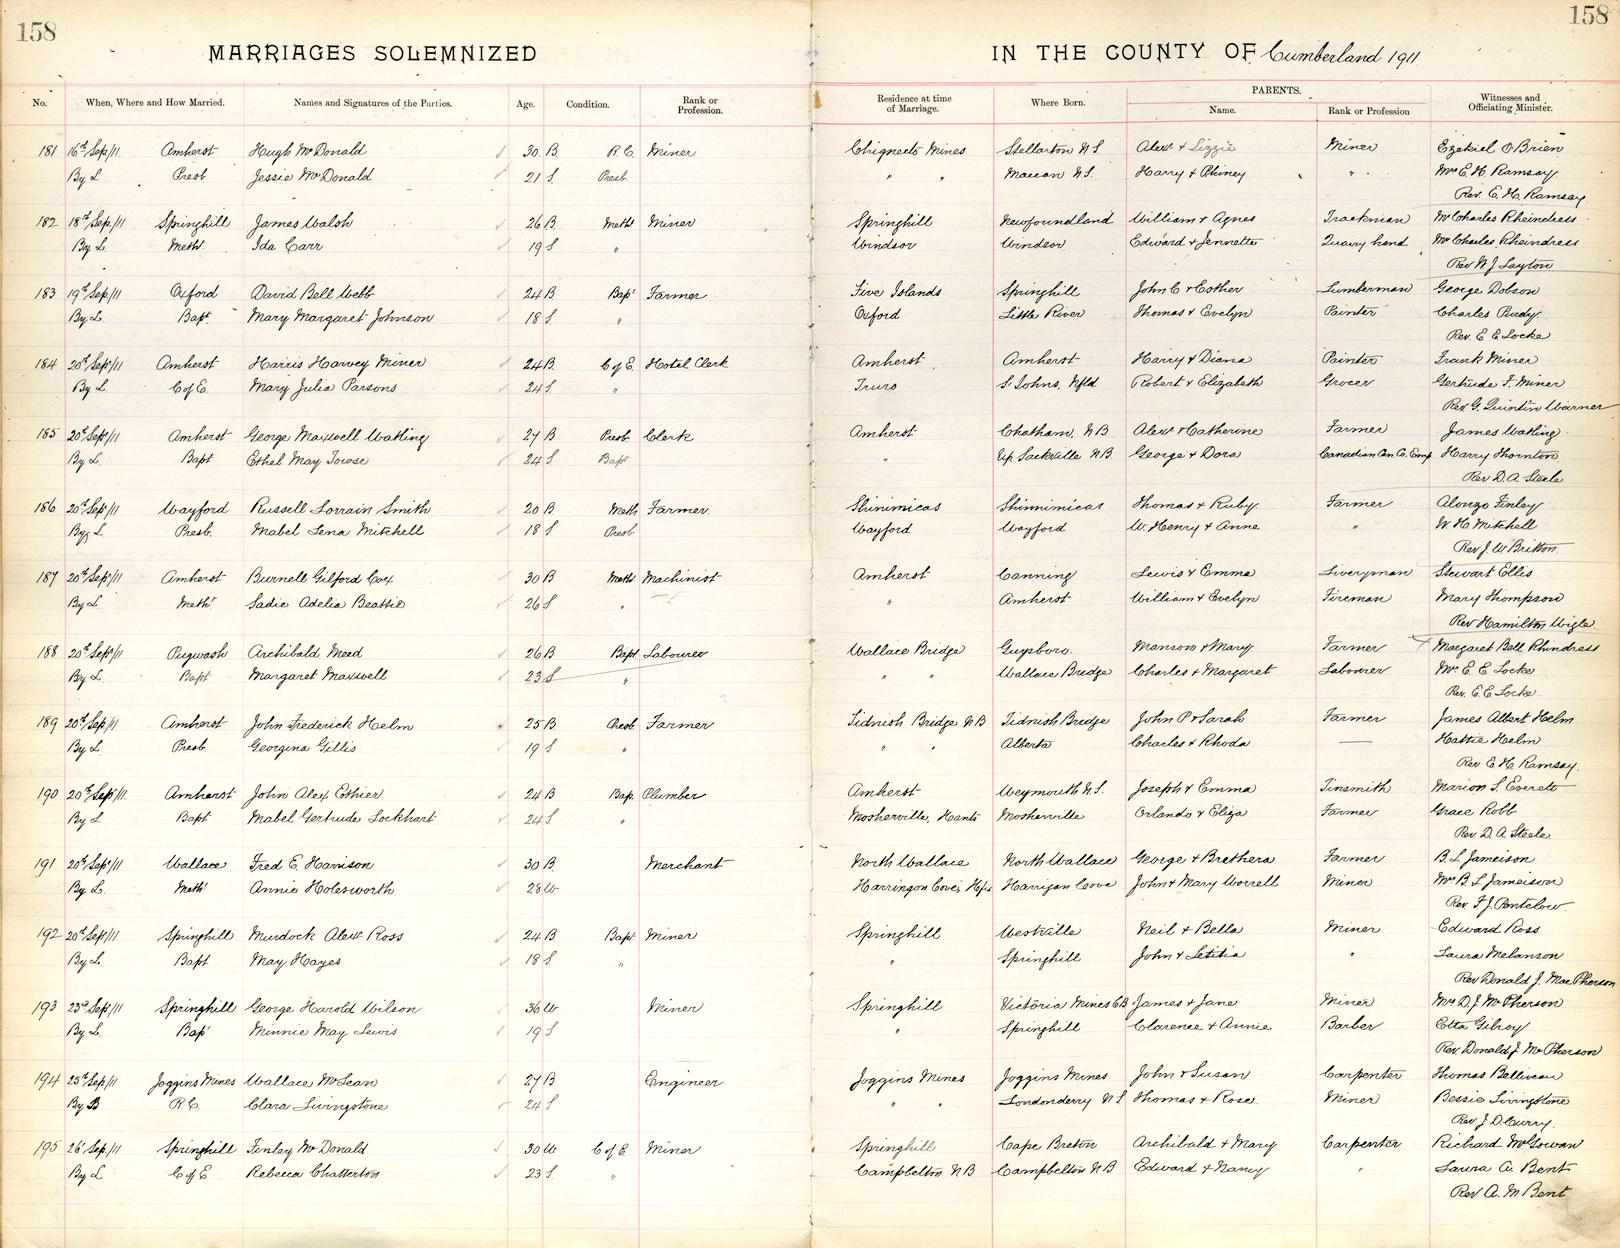 158
158
MARRIAGES SOLEMNIZED
IN THE COUNTY OF Cumberland 1911
No. When, Where and How Married. Names and Signatures of the Parties. Age. Condition. Rank or Profession. Residence at time of Marriage. Where Born. PARENTS. Name. Rank or Profession Witnesses and Officiating Minister.
181 16th Sep/11 Amherst Hugh McDonald 30 B. R.C. Miner Chignecto Mines Stellarton N.S. Alex & Lizzie Miner Ezekiel O'Brien
By L Presb Jessie McDonald 21 S. Presb. " " Maccan N.S. Harry & Phiney " Mrs E. H. Ramsay
Rev. E. H. Ramsay
182 18th Sep/11 Springhill James Walsh 26 B Meth Miner Springhill Newfoundland William & Agnes Trackman Mr Charles Rheindress
By L. Meth. Ida Carr 19 S " Windsor Windsor Edward & Jennette Quarry hand Mrs Charles Rheindress
Rev W J Layton
183 19th Sep/11 Oxford David Bell Webb 24 B Bapt Farmer Five Islands Springhill John C & Esther Lumberman George Dobson
By L. Bapt. Mary Margaret Johnson 18 S. " Oxford Little River Thomas & Evelyn Painter Charles Purdy
Rev. E E Locke
184 20th Sept/11 Amherst Harris Harvey Miner 24 B. C of E. Hotel Clerk Amherst Amherst Harry & Diana Painter Frank Miner
By L C of E. Mary Julia Parsons 24 S " Truro St Johns, Nfld Robert & Elizabeth Grocer Gertrude F. Miner
Rev G. Quintin Warner
185 20th Sept/11 Amherst George Maxwell Watling 27 B Presb. Clerk Amherst Chatham, N B Alex & Catherine Farmer James Watling
By L. Bapt Ethel May Towse 24 S Bapt " Up Sackville N B George & Dora Canadian Can. Co. Emp Harry Thornton
Rev D. A. Steele
186 20th Sept/11 Wayford Russell Lorrain Smith 20 B Meth Farmer. Shinimicas Shinimicas Thomas & Ruby Farmer Alonzo Finley
By L Presb. Mabel Lena Mitchell 18 S Presb Wayford Wayford W. Henry & Anne " W. H. Mitchell
Rev J. W Britton
187 20th Sept/11 Amherst Burnell Gilford Cox 30 B Meth Machinist Amherst Canning Lewis & Emma Liveryman Stewart Ellis
By L Meth. Sadie Adelia Beattie 26 S " " Amherst William & Evelyn Fireman Mary Thompson
Rev Hamilton Wigle
188 20th Sept/11 Pugwash Archibald Meed 26 B Bapt Labourer Wallace Bridge Guysboro. Manson & Mary Farmer Margaret Bell Rhindress
By L Bapt Margaret Maxwell 23 S " " " Wallace Bridge Charles & Margaret Labourer Mrs E E Locke
Rev. E E Locke
189 20th Sep/11 Amherst John Frederick Helm 25 B Presb. Farmer Tidnish Bridge N B Tidnish Bridge John P & Sarah Farmer James Albert Helm
By L Presb. Georgina Gillis 19 S " " " Alberta Charles & Rhoda — Hattie Helm
Rev E. H. Ramsay.
190 20th Sept/11. Amherst John Alex Ethier 24 B Bap. Plumber Amherst Weymouth N.S. Joseph & Emma Tinsmith Marion S. Everett
By L Bapt Mabel Gertrude Lockhart 24 S " Mosherville, Hants Mosherville Orlando & Eliza Farmer Grace Robb
Rev D. A Steele
191 20th Sep/11 Wallace Fred E. Harrison 30 B. Merchant North Wallace North Wallace George & Brethera Farmer B. L Jameison
By L. Meth Annie Holesworth 28 W Harrigan Cove, Hfx Harrigan Cove John & Mary Worrell Miner Mrs B. L Jameison
Rev F. J. Pentelow.
192 20th Sept/11 Springhill Murdock Alex Ross 24 B Bapt Miner Springhill Westville Neil & Bella Miner Edward Ross
By L. Bapt May Hayes 18 S. " " Springhill John & Letitia " Laura Melanson
Rev Donald J. MacPherson
193 23rd Sept/11 Springhill George Harold Wilson 36 W Miner Springhill Victoria Mines C B James & Jane Miner Mrs D. J. McPherson
By L. Bap Minnie May Lewis 19 S " Springhill Clarence & Annie Barber Etta Gilroy
Rev. Donald J. McPherson
194 25th Sep/11 Joggins Mines Wallace McLean 27 B Engineer Joggins Mines Joggins Mines John & Susan Carpenter Thomas Belliveau
By B R. C. Clara Livingstone 24 S. " " Londonderry N S Thomas & Rose. Miner Bessie Livingstone
Rev J. D. Curry.
195 26 Sep/11 Springhill Finley McDonald 30 W C of E Miner Springhill Cape Breton Archibald & Mary Carpenter Richard McGowan
By L C of E Rebecca Chatterton 23 S. " Campbelton N B Campbelton N B Edward & Nancy " Laura A. Bent
Rev A. M Bent